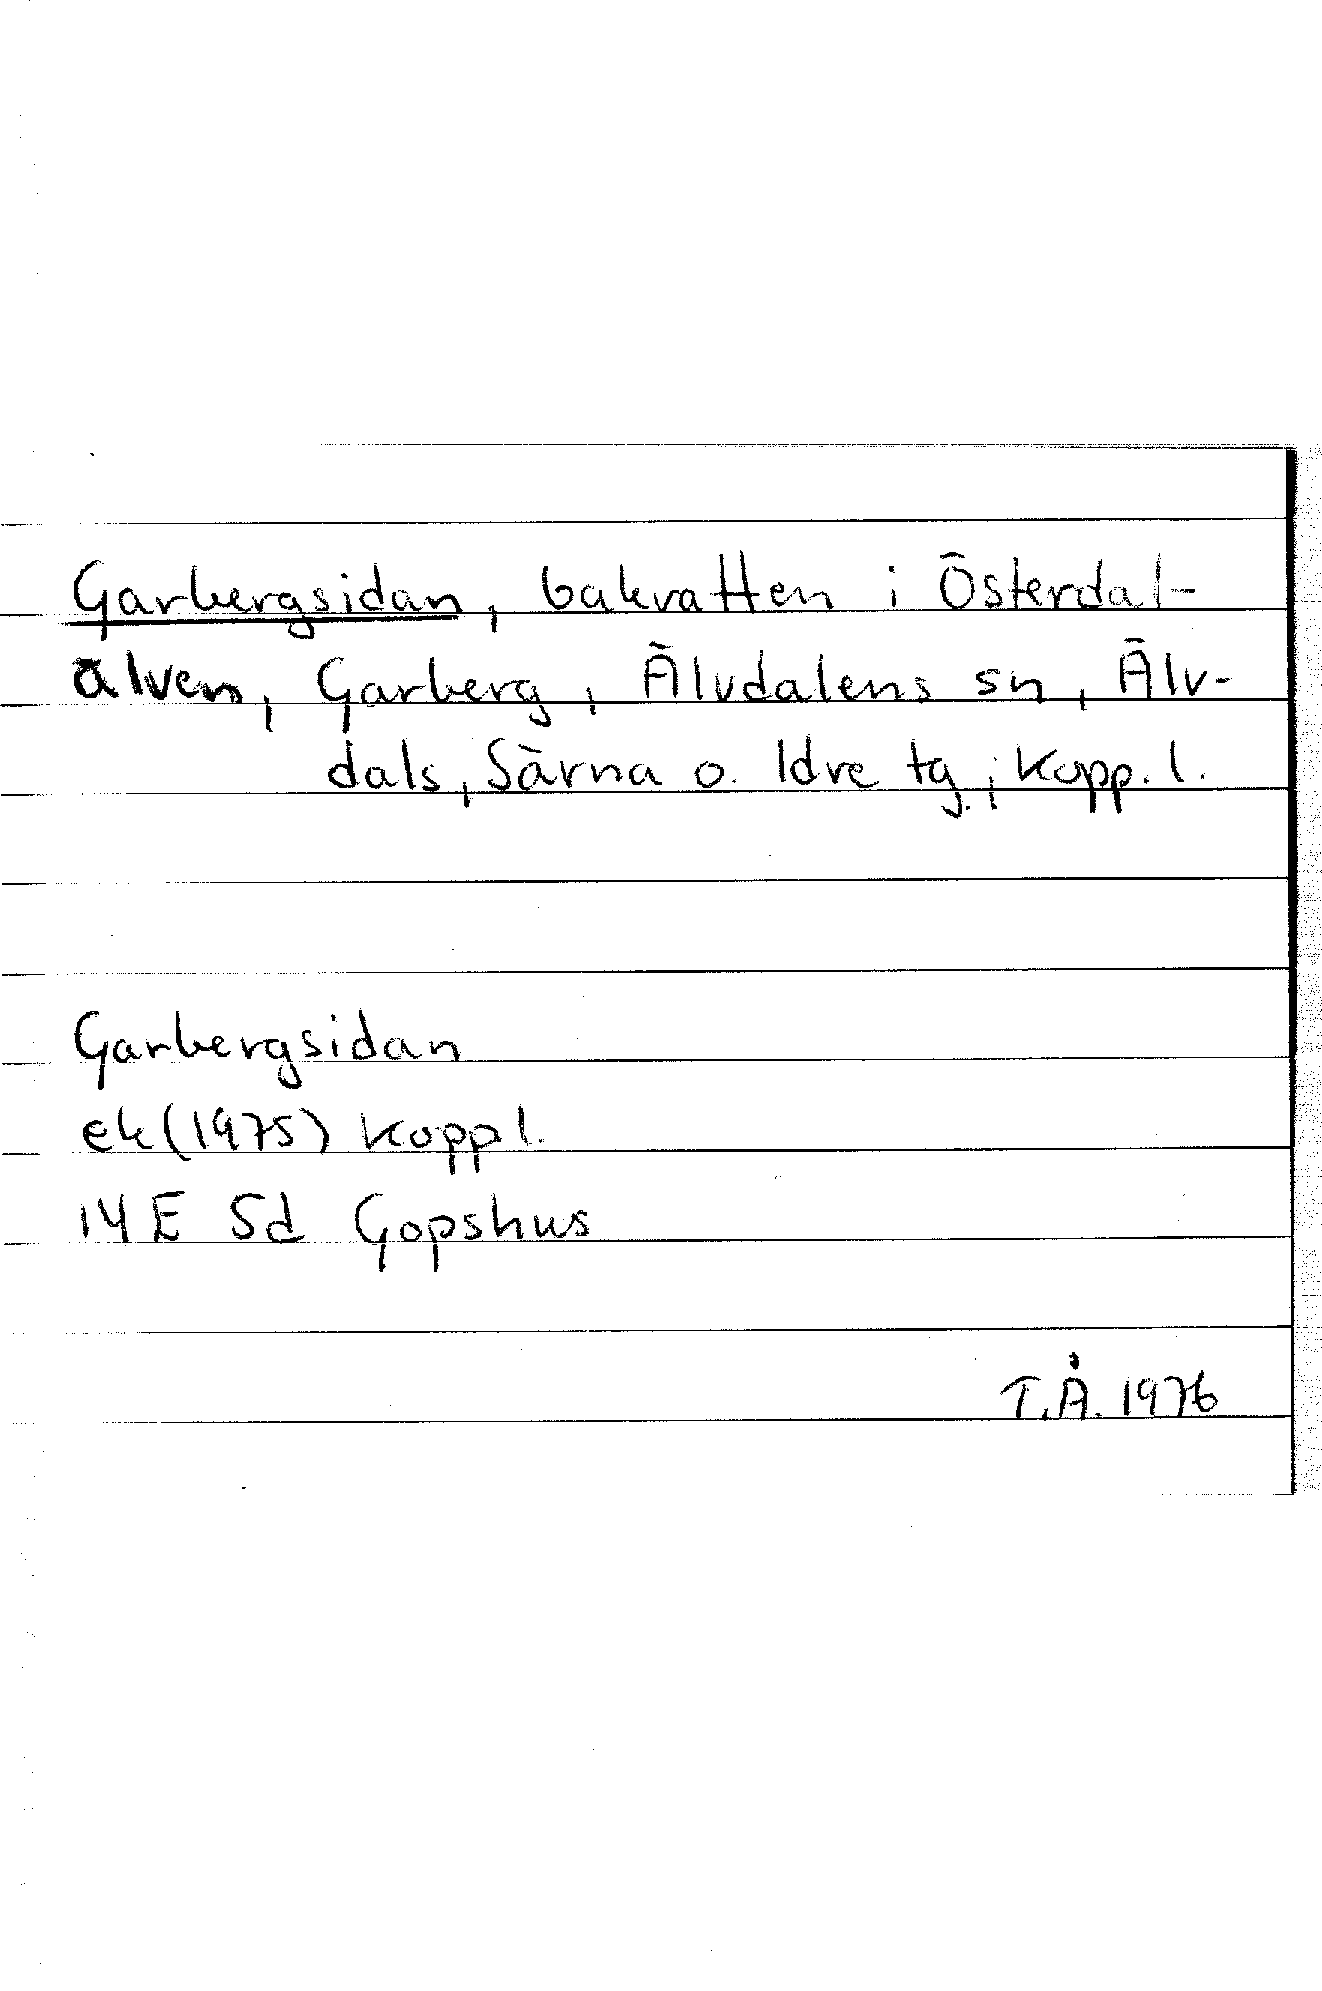 Garbergsidan, bakvatten i Österdal-
älven, Garberg, Älvdalens sn, Älv-
dals, Särna o. Idre tg, Kopp. l.
Garbergsidan
ek (1975) Koppl.
14 E 5d Gopshus
T.Å. 1976